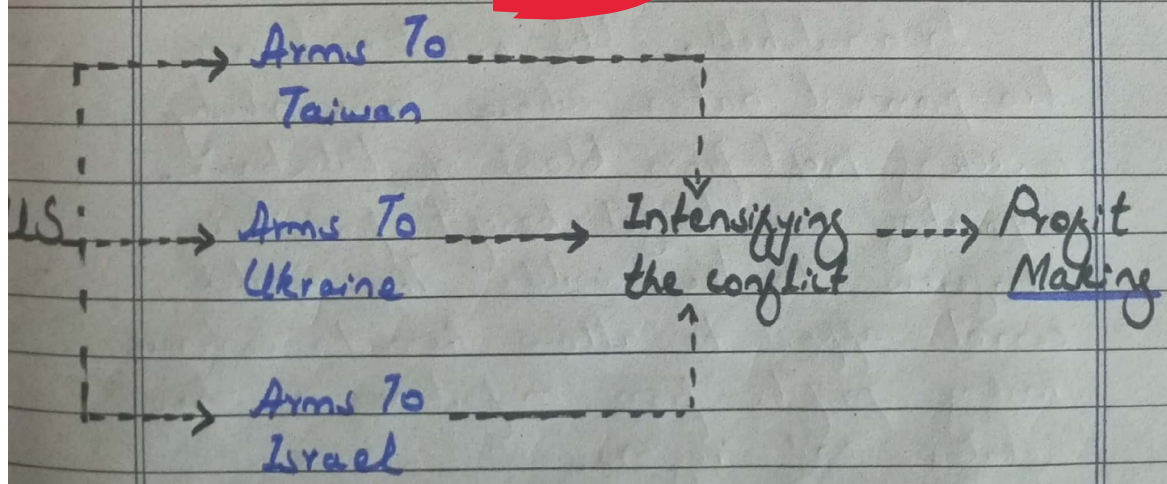 Arms To
Taiwan
US
Arms To
Ukraine
Intensifying
the conflict
Profit
Making
Arms To
Israel